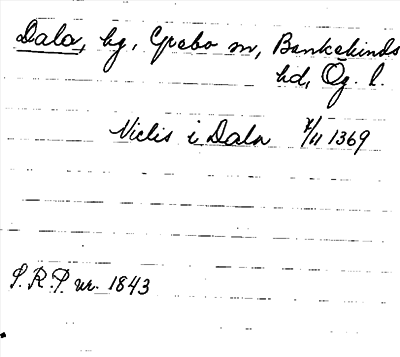 Dala, hg, Grebo sn, Bankekinds
hd, Ög. l.
Niclis i Dala 7/11 1369
S.R.P. nr. 1843